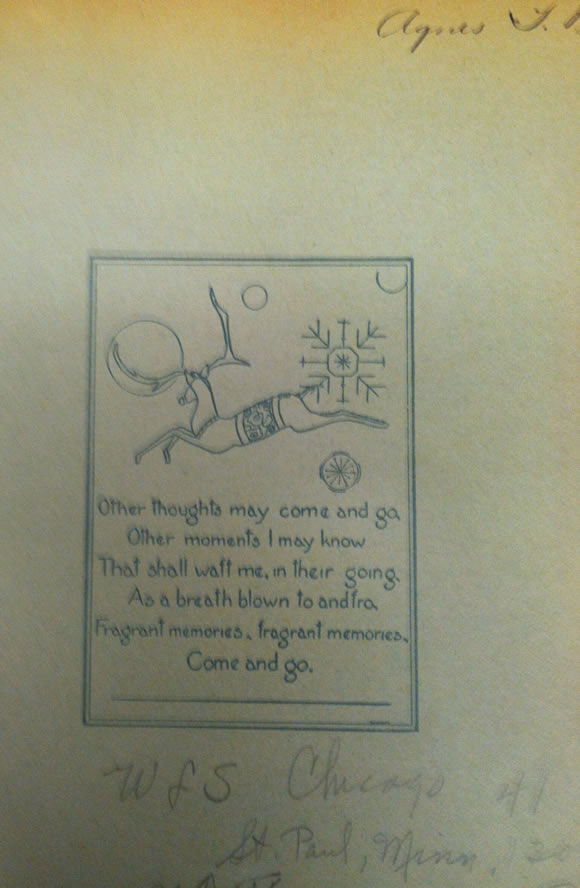 Agnes
Other thoughts may come and go,
Other moments I may know
That shall waft me, in their going,
As a breath blown to and fro,
Fragrant memories, fragrant memories,
Come and go.
W L S Chicago 41
St. Paul, Minn,